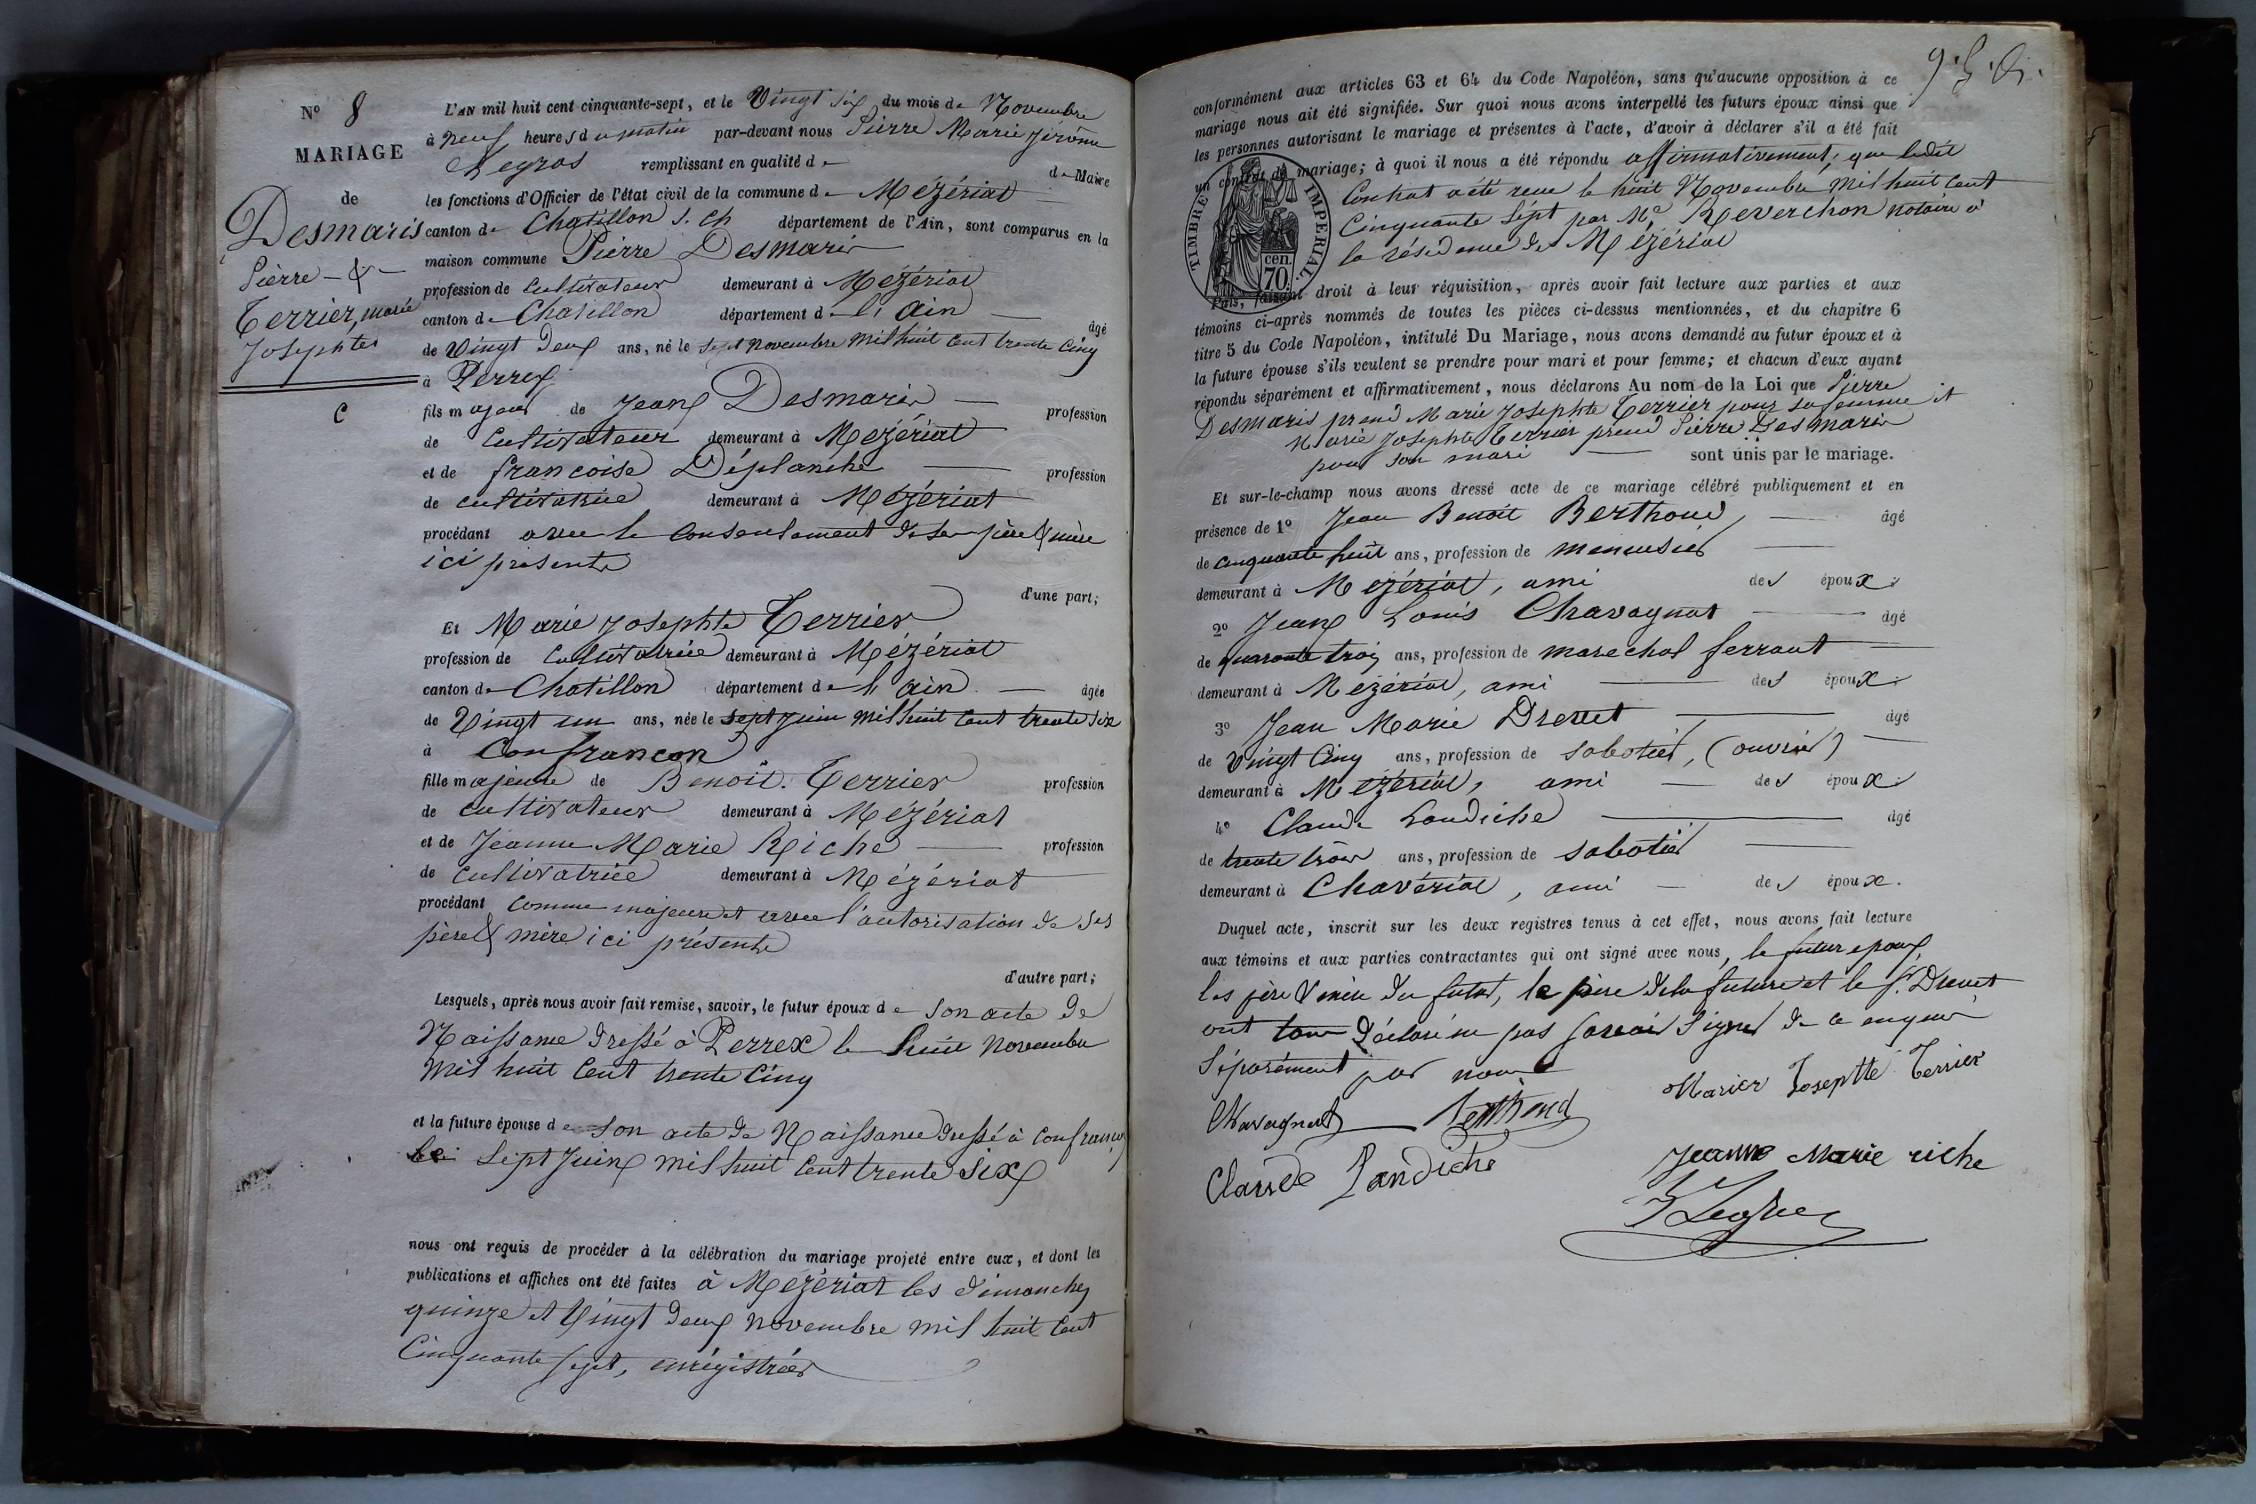 N° 8
MARIAGE
de
Desmaris
Pierre — & —
Terrier, marie
Josephte
C
L'AN mil huit cent cinquante-sept, et le Vingt six du mois de Novembre
à neuf heures du matin par-devant nous Pierre Marie Jérôme
Legros remplissant en qualité de de Maire
les fonctions d'Officier de l'état civil de la commune de Mézériat
canton de Chatillon s. ch département de l'Ain, sont comparus en la
maison commune Pierre Desmaris
profession de cultivateur demeurant à Mézériat
canton de Chatillon département de l'Ain — âgé
de Vingt deux ans, né le sept novembre mil huit cent trente cinq
à Perrex
fils majeur de Jean Desmaris — profession
de cultivateur demeurant à Mézériat
et de francoise Déplanche — profession
de cultivatrice demeurant à Mézériat
procédant avec le consentement de ses père & mère
ici présents
d'une part;
Et Marie Josephte Terrier
profession de cultivatrice demeurant à Mézériat
canton de Chatillon département de l'ain — âgée
de Vingt un ans, née le sept juin mil huit cent trente six
à Confrançon
fille majeure de Benoit Terrier profession
de cultivateur demeurant à Mézériat
et de Jeanne Marie Riche — profession
de cultivatrice demeurant à Mézériat
procédant comme majeure et avec l'autorisation de ses
père & mère ici présents
d'autre part;
Lesquels, après nous avoir fait remise, savoir, le futur époux de son acte de
Naissance dressé à Perrex le huit novembre
mil huit cent trente cinq
et la future épouse de son acte de Naissance dressé à Confrançon
le sept Juin mil huit cent trente six
nous ont requis de procéder à la célébration du mariage projeté entre eux, et dont les
publications et affiches ont été faites à Mézériat les dimanches
quinze et vingt deux novembre mil huit cent
Cinquante sept, enrégistrées
conformément aux articles 63 et 64 du Code Napoléon, sans qu'aucune opposition à ce
mariage nous ait été signifiée. Sur quoi nous avons interpellé les futurs époux ainsi que
les personnes autorisant le mariage et présentes à l'acte, d'avoir à déclarer s'il a été fait
un contrat de mariage; à quoi il nous a été répondu affirmativement, que ledit
Contrat a été reçu le huit Novembre mil huit cent
Cinquante sept par Me Reverchon notaire à
la résidence de Mézériat
TIMBRE IMPERIAL.
cen.
70.
Puis, faisant droit à leur réquisition, après avoir fait lecture aux parties et aux
témoins ci-après nommés de toutes les pièces ci-dessus mentionnées, et du chapitre 6
titre 5 du Code Napoléon, intitulé Du Mariage, nous avons demandé au futur époux et à
la future épouse s'ils veulent se prendre pour mari et pour femme; et chacun d'eux ayant
répondu séparément et affirmativement, nous déclarons Au nom de la Loi que Pierre
Desmaris prend Marie Josephte Terrier pour sa femme et
Marie Josephte Terrier prend Pierre Desmaris
pour son mari — sont unis par le mariage.
Et sur-le-champ nous avons dressé acte de ce mariage célébré publiquement et en
présence de 1° Jean Benoit Berthoud, — âgé
de cinquante huit ans, profession de menuisier —
demeurant à Mézériat, ami des époux.
2° Jean Louis Chavagnat — âgé
de quarante trois ans, profession de marechal ferrant —
demeurant à Mézériat, ami — des époux.
3° Jean Marie Drevet — âgé
de Vingt Cinq ans, profession de sabotier, (ouvrier) —
demeurant à Mézériat, ami — des époux.
4° Claude Landiche — âgé
de trente trois ans, profession de sabotier —
demeurant à Chavériat, ami — des époux.
Duquel acte, inscrit sur les deux registres tenus à cet effet, nous avons fait lecture
aux témoins et aux parties contractantes qui ont signé avec nous, le futur epoux,
les père & mère du futur, le père de la future et le s. Drevet
ont tous déclaré ne pas savoir signer de ce enquis
séparément par nous
Marier Joseptte Terrier
Chavagnat Berthoud
Claude Landiche
Jeanne Marie riche
J Legros